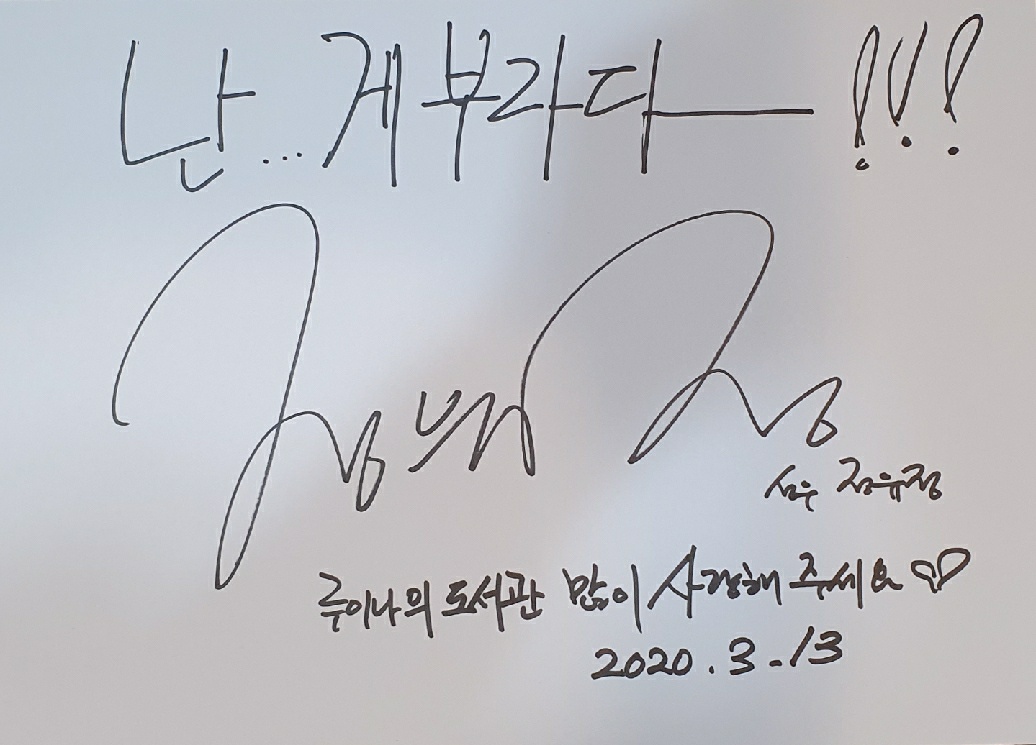 난... 게부라다 !!!
성우 정유정
루이나의 도서관 많이 사랑해 주세요♡
2020.3.13